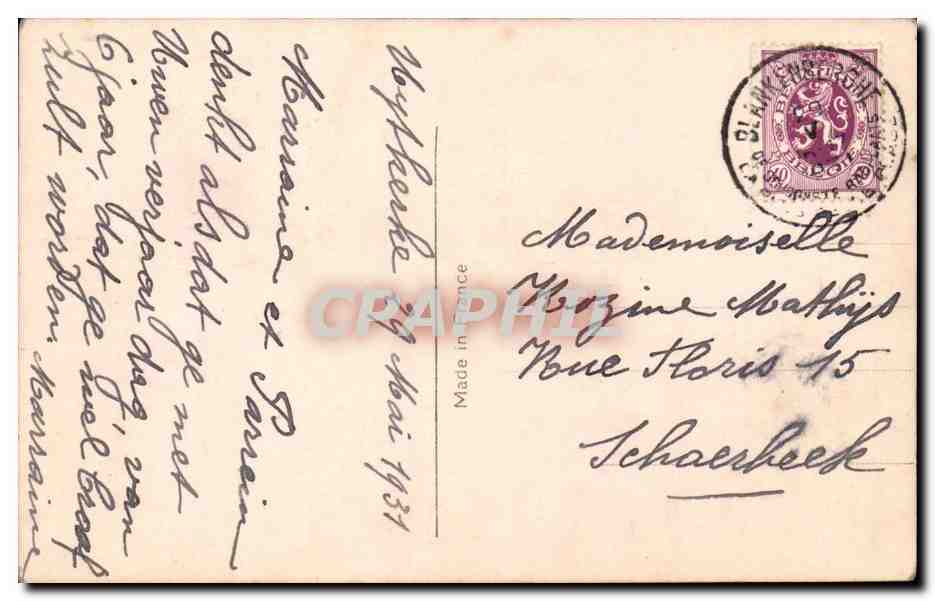 Uytkerke 29 Mai 1931
Marraine et Parrein
denkt alsdat ge met
Uwen verjaar dag van
6 jaar, dat ge wel braaf
zult worden Marraine
Made in France
Mademoiselle
Rozine Mathijs
Rue Floris 15
Schaerbeek
BLANKENBERGHE
BELGIE
BELGIQUE
40
40
CRAPHIL